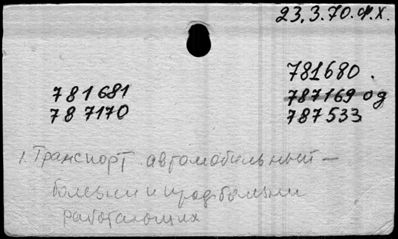 23.3.70.Ф.Х.
781680.
781681
787169 од
787170
787533
1. Транспорт автомобильный —
болезни и профболезни
работающих